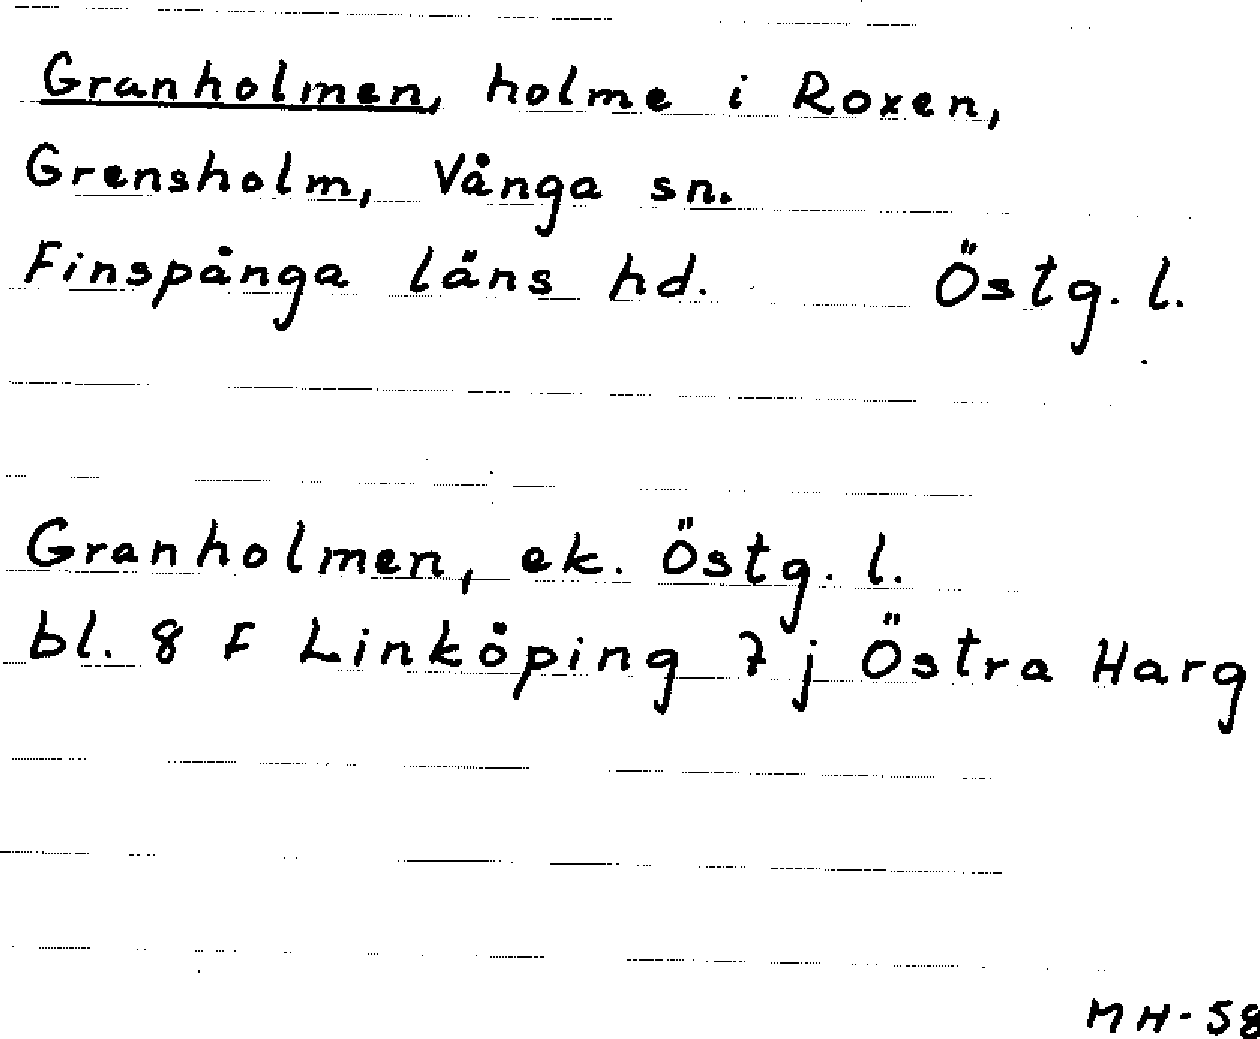 Granholmen, holme i Roxen,
Grensholm, Vånga sn.
Finspånga läns hd. Östg. l.
Granholmen, ek. Östg. l.
bl. 8 F Linköping 7 j Östra Harg
MH-58